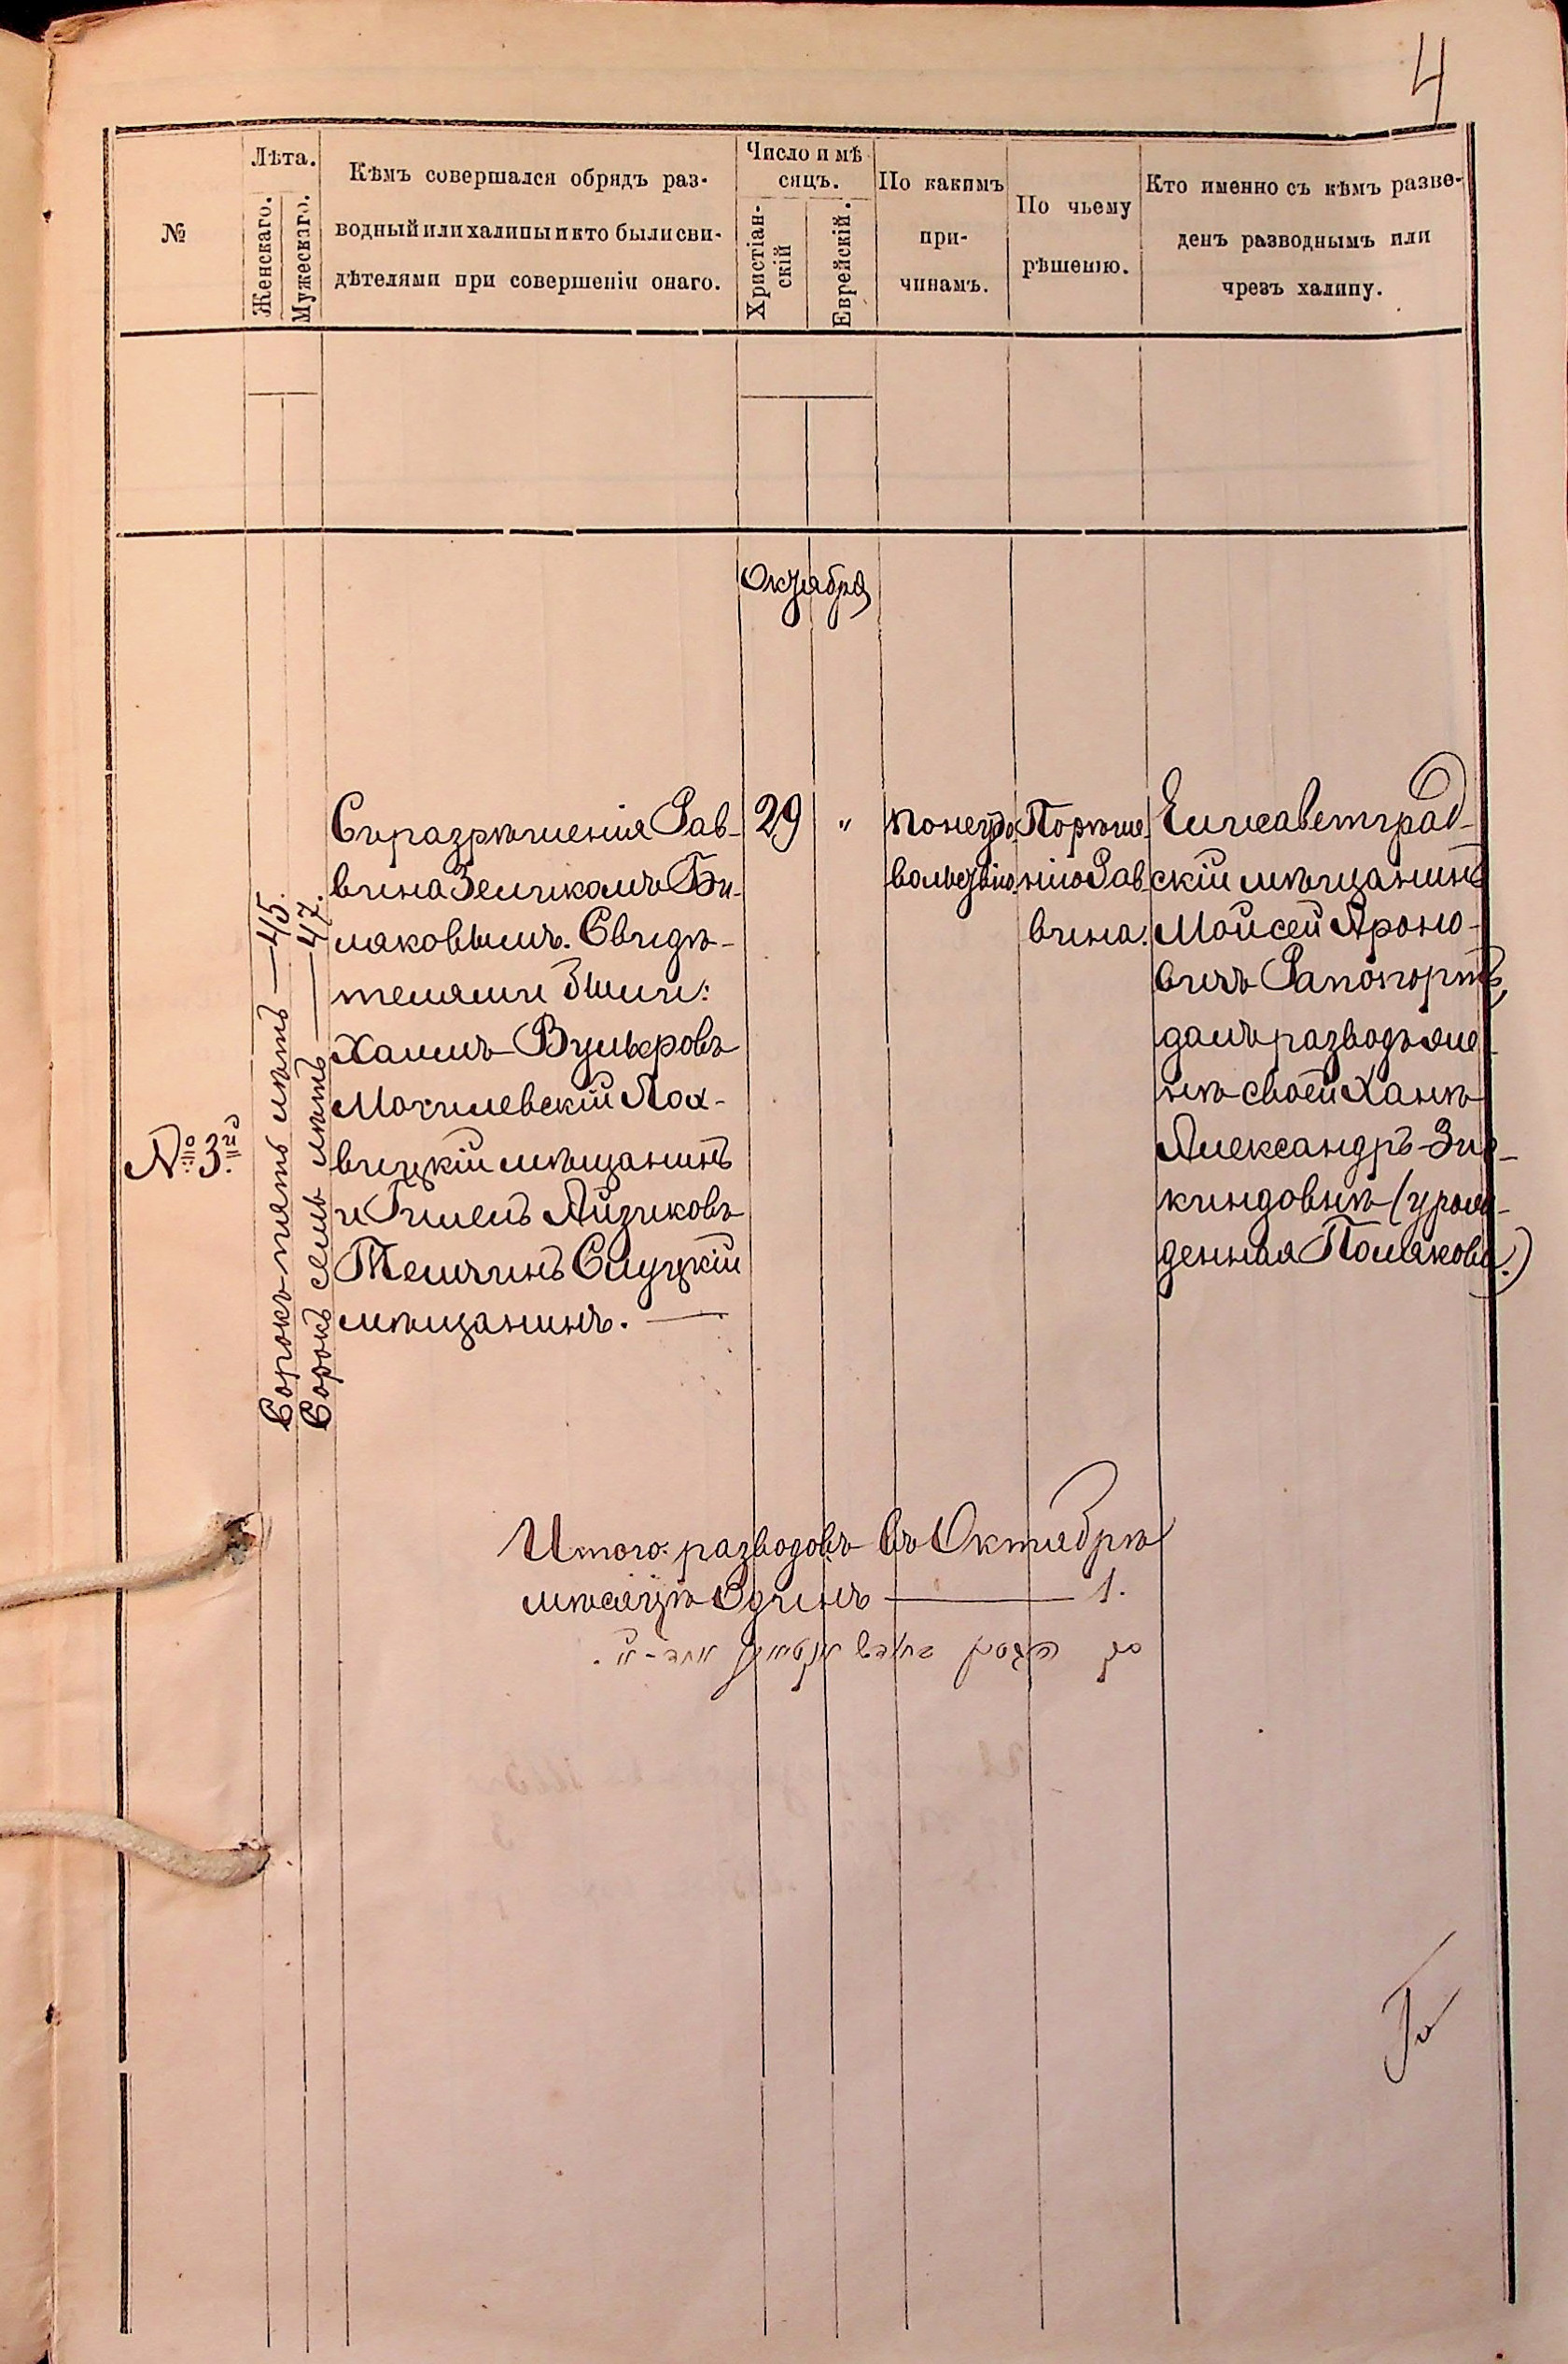 4
№
Лѣта.
Женскаго.
Мужескаго.
Кѣмъ совершался обрядъ раз-
водный или халицы и кто были сви-
дѣтелями при совершеніи онаго.
Число и мѣ
сяцъ.
Христіан-
скій
Еврейскій.
По какимъ
при-
чинамъ.
По чьему
рѣшенію.
Кто именно съ кѣмъ разве-
денъ разводнымъ или
чрезъ халицу.
Октября
№ 3й
Сорокъ пять лѣтъ — 45.
Сорокъ семь лѣтъ — 47.
Съ разрѣшенія Рав-
вина Зеликомъ
Свидѣ-
телями были:
Хаимъ Вульфовъ
Могилевскій Лох-
вицкій мѣщанинъ
и Гилелъ Айзиковъ
Слуцкій
мѣщанинъ. —
29
"
По неудо-
вольствію
По рѣше-
нію Рав-
вина.
Елисаветград-
скій мѣщанинъ
Мойсей Ароно-
вичъ Рапопортъ,
далъ разводъ же-
нѣ своей Ханѣ
Александръ-Зис-
киндовнѣ (урож-
денная Полякова.)
Итого: разводовъ въ Октябрѣ
мѣсяцѣ Одинъ — 1.